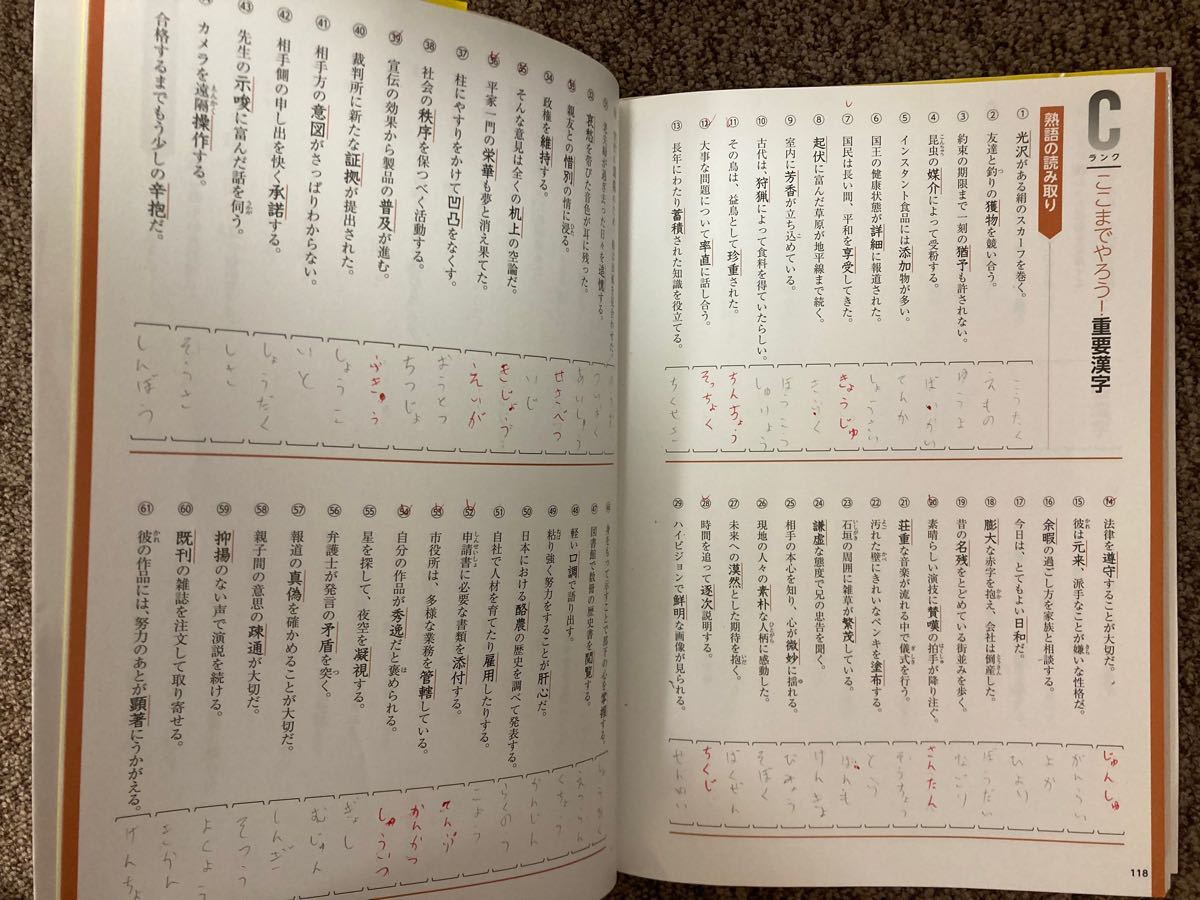 C
ランク
ここまでやろう！重要漢字
熟語の読み取り
① 光沢がある絹のスカーフを巻く。
こうたく
② 友達と釣りの獲物を競い合う。
えもの
③ 約束の期限まで一刻の猶予も許されない。
ゆうよ
④ 昆虫の媒介によって受粉する。
ばいかい
⑤ インスタント食品には添加物が多い。
てんか
⑥ 国王の健康状態が詳細に報道された。
しょうさい
⑦ 国民は長い間、平和を享受してきた。
きょうじゅ
⑧ 起伏に富んだ草原が地平線まで続く。
⑨ 室内に芳香が立ち込めている。
⑩ 古代は、狩猟によって食料を得ていたらしい。
しゅりょう
⑪ その鳥は、益鳥として珍重された。
ちんちょう
⑫ 大事な問題について率直に話し合う。
そっちょく
⑬ 長年にわたり蓄積された知識を役立てる。
ちくせき
⑭ 法律を遵守することが大切だ。
じゅんしゅ
⑮ 彼は元来、派手なことが嫌いな性格だ。
がんらい
⑯ 余暇の過ごし方を家族と相談する。
よか
⑰ 今日は、とてもよい日和だ。
ひより
⑱ 膨大な赤字を抱え、会社は倒産した。
ぼうだい
⑲ 昔の名残をとどめている街並みを歩く。
なごり
⑳ 素晴らしい演技に賛嘆の拍手が降り注ぐ。
さんたん
㉑ 荘重な音楽が流れる中で儀式を行う。
そうちょう
㉒ 汚れた壁にきれいなペンキを塗布する。
とふ
㉓ 石垣の周囲に雑草が繁茂している。
はんも
㉔ 謙虚な態度で兄の忠告を聞く。
けんきょ
㉕ 相手の本心を知り、心が微妙に揺れる。
びみょう
㉖ 現地の人々の素朴な人柄に感動した。
そぼく
㉗ 未来への漠然とした期待を抱く。
ばくぜん
㉘ 時間を追って逐次説明する。
ちくじ
㉙ ハイビジョンで鮮明な画像が見られる。
せんめい
118
哀愁を帯びた音色が耳に残った。
あいしゅう
親友との惜別の情に浸る。
せきべつ
㉞ 政権を維持する。
いじ
㉟ そんな意見は全くの机上の空論だ。
きじょう
㊱ 平家一門の栄華も夢と消え果てた。
えいが
㊲ 柱にやすりをかけて凹凸をなくす。
おうとつ
㊳ 社会の秩序を保つべく活動する。
ちつじょ
㊴ 宣伝の効果から製品の普及が進む。
ふきゅう
㊵ 裁判所に新たな証拠が提出された。
しょうこ
㊶ 相手方の意図がさっぱりわからない。
いと
㊷ 相手側の申し出を快く承諾する。
しょうだく
㊸ 先生の示唆に富んだ話を伺う。
しさ
カメラを遠隔操作する。
そうさ
合格するまでもう少しの辛抱だ。
しんぼう
図書館で数冊の歴史書を閲覧する。
えつらん
㊽ 軽い口調で語り出す。
くちょう
㊾ 粘り強く努力をすることが肝心だ。
かんじん
㊿ 日本における酪農の歴史を調べて発表する。
らくのう
51 自社で人材を育てたり雇用したりする。
こよう
52 申請書に必要な書類を添付する。
てんぷ
53 市役所は、多様な業務を管轄している。
かんかつ
54 自分の作品が秀逸だと褒められる。
しゅういつ
55 星を探して、夜空を凝視する。
ぎょし
56 弁護士が発言の矛盾を突く。
むじゅん
57 報道の真偽を確かめることが大切だ。
しんぎ
58 親子間の意思の疎通が大切だ。
そつう
59 抑揚のない声で演説を続ける。
よくよう
60 既刊の雑誌を注文して取り寄せる。
きかん
61 彼の作品には、努力のあとが顕著にうかがえる。
けんちょ